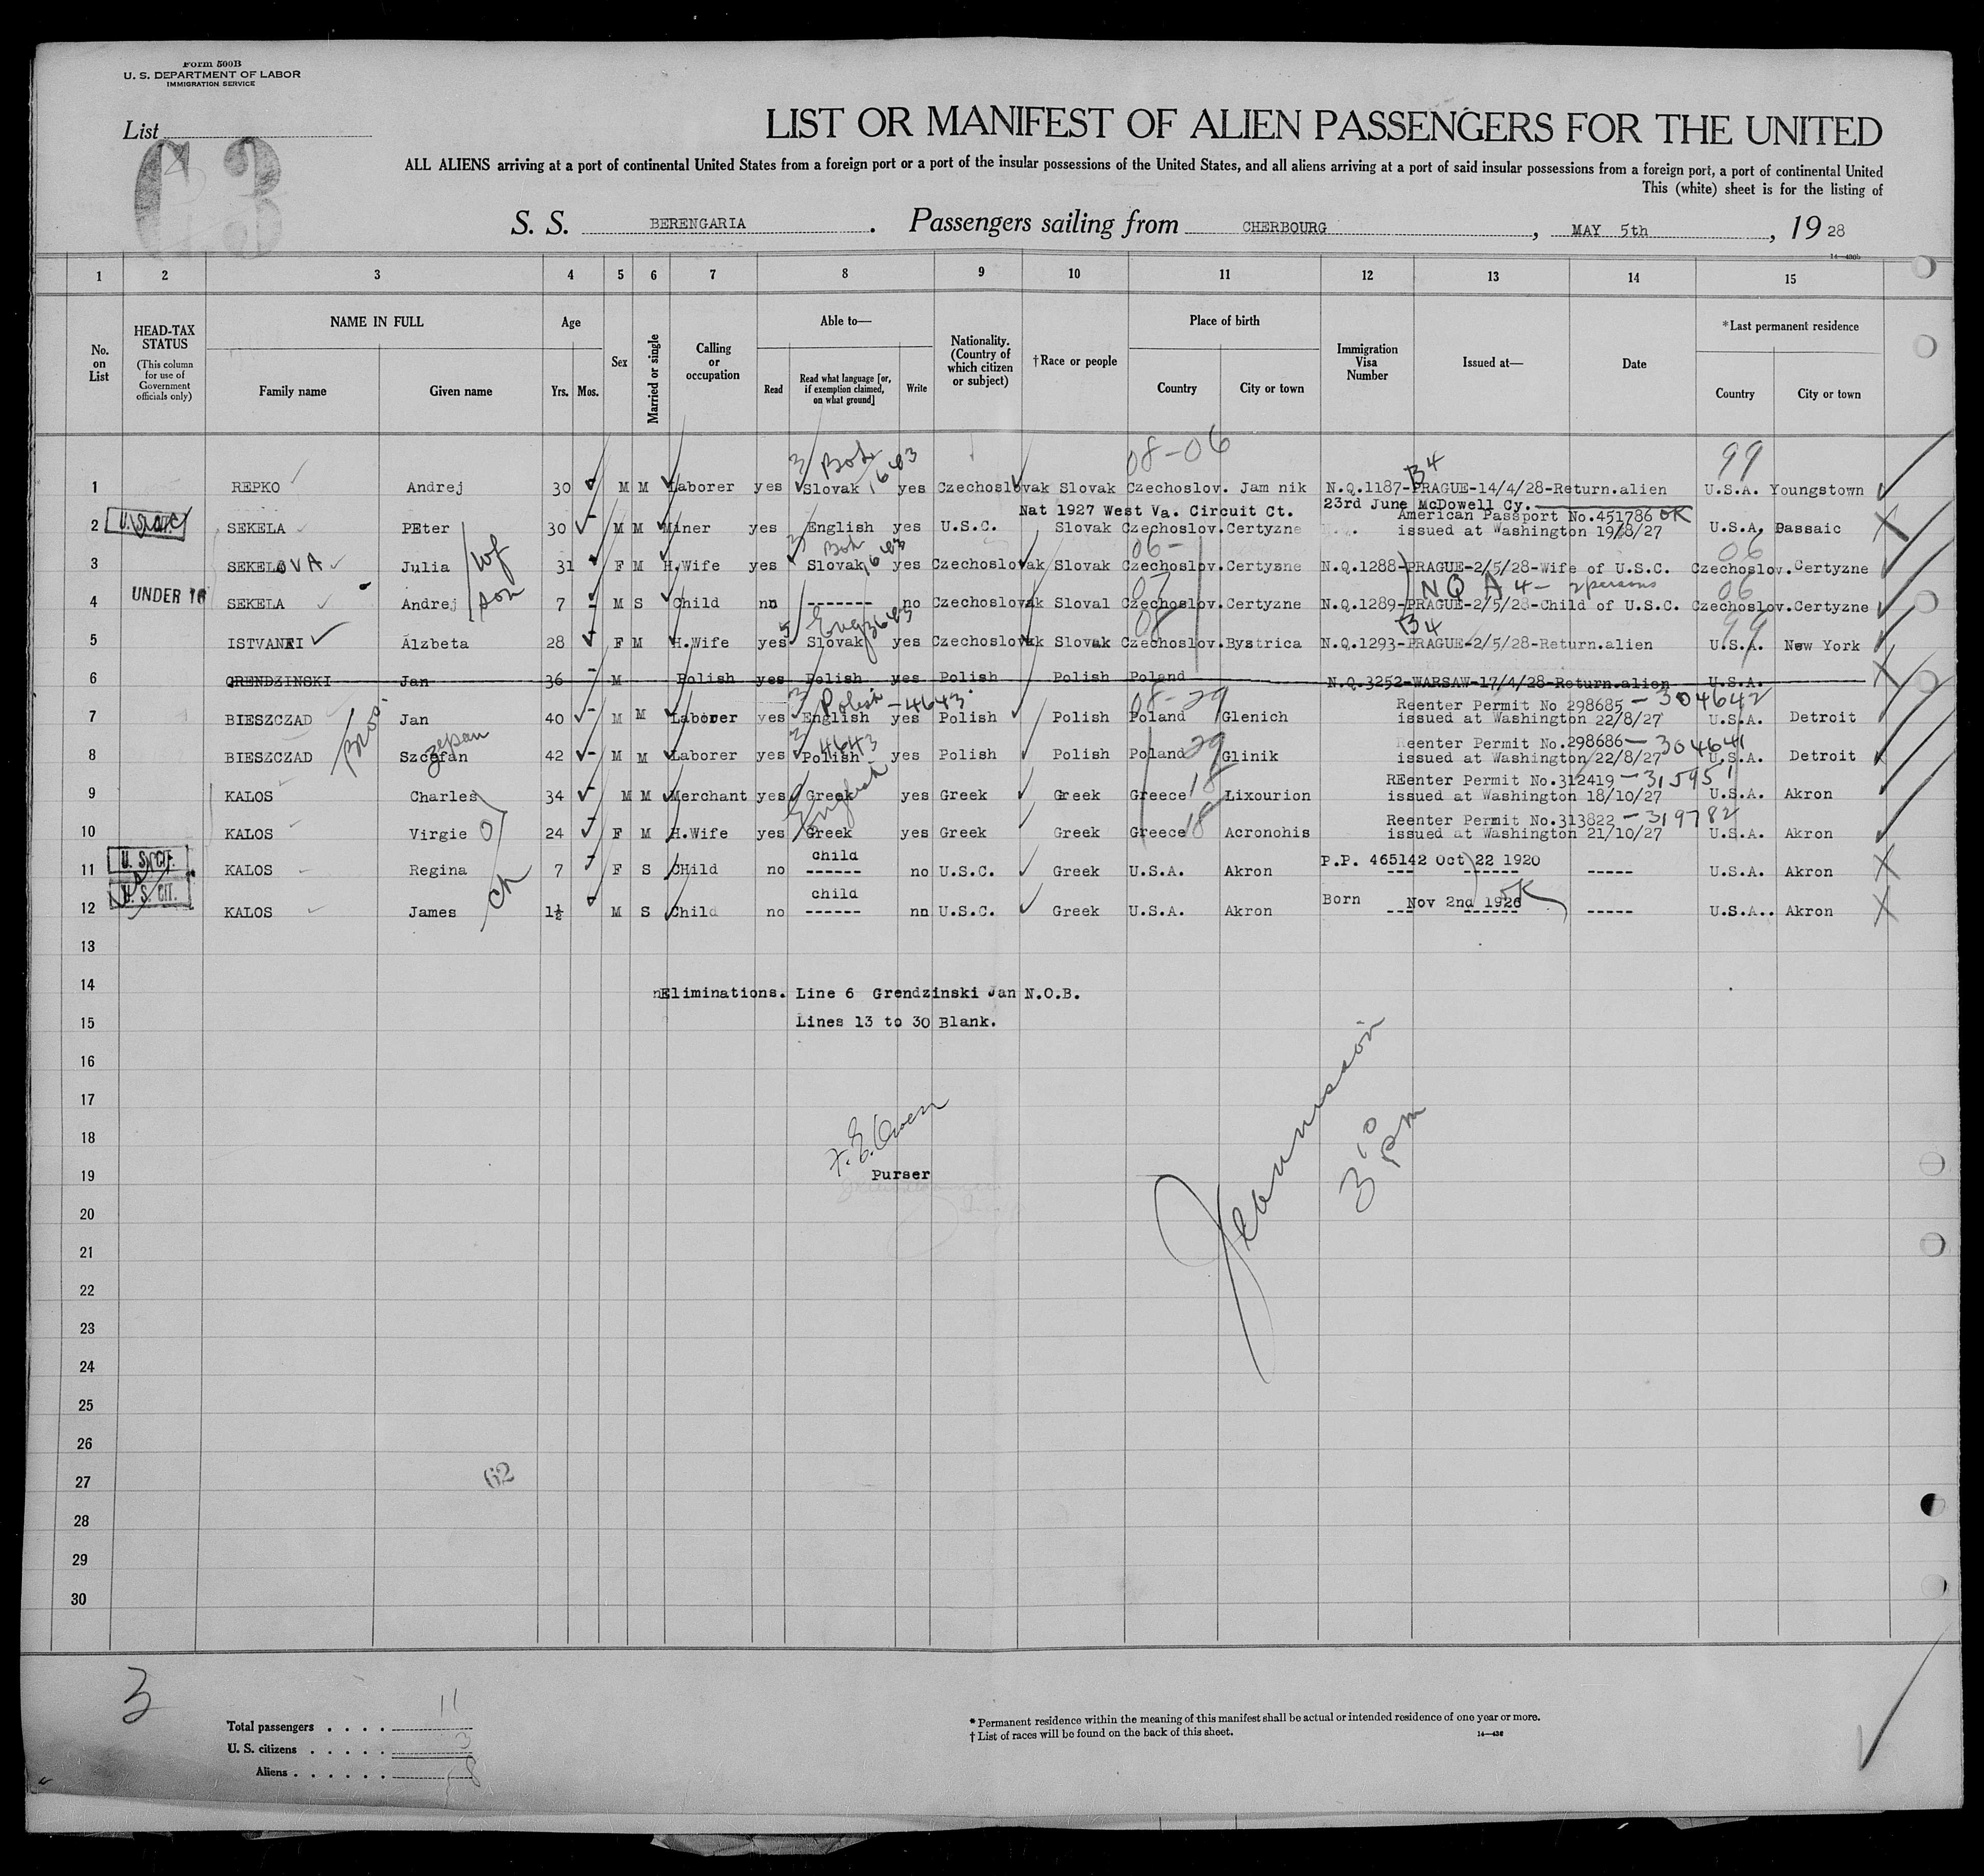 Form 500B
U. S. DEPARTMENT OF LABOR
IMMIGRATION SERVICE
List
63
LIST OR MANIFEST OF ALIEN PASSENGERS FOR THE UNITED
ALL ALIENS arriving at a port of continental United States from a foreign port or a port of the insular possessions of the United States, and all aliens arriving at a port of said insular possessions from a foreign port, a port of continental United
This (white) sheet is for the listing of
S. S. BERENGARIA. Passengers sailing from CHERBOURG, MAY 5th, 1928
14—430b
1 2 3 4 5 6 7 8 9 10 11 12 13 14 15
No. on List
HEAD-TAX STATUS (This column for use of Government officials only)
NAME IN FULL
Family name Given name
Age
Yrs. Mos.
Sex
Married or single
Calling or occupation
Able to—
Read Read what language [or, if exemption claimed, on what ground] Write
Nationality. (Country of which citizen or subject)
†Race or people
Place of birth
Country City or town
Immigration Visa Number
Issued at—
Date
*Last permanent residence
Country City or town
3 Boh 1683 08-06 B4 99
1 REPKO Andrej 30 M M Laborer yes Slovak yes Czechoslovak Slovak Czechoslov. Jam nik N.Q.1187-PRAGUE-14/4/28-Return.alien U.S.A. Youngstown
Nat 1927 West Va. Circuit Ct. 23rd June McDowell Cy.
American Passport No.451786 OK
2 U.S.CIT. SEKELA PEter 30 M M Miner yes English yes U.S.C. Slovak Czechoslov. Certyzne issued at Washington 19/8/27 U.S.A. Passaic
3 Boh 1683 06- 06
3 SEKELOVA Julia wf 31 F M H.Wife yes Slovak yes Czechoslovak Slovak Czechoslov. Certysne N.Q.1288-PRAGUE-2/5/28-Wife of U.S.C. Czechoslov. Certyzne
NQA 4- 2 persons 06
4 UNDER 16 SEKELA Andrej son 7 - M S Child no ------- no Czechoslovak Sloval Czechoslov. Certyzne N.Q.1289-PRAGUE-2/5/28-Child of U.S.C. Czechoslov. Certyzne
Eng B4 99
5 ISTVANKI Álzbeta 28 F M H.Wife yes Slovak yes Czechoslovak Slovak Czechoslov. Bystrica N.Q.1293-PRAGUE-2/5/28-Return.alien U.S.A. New York
6 GRENDZINSKI Jan 36 - M Polish yes Polish yes Polish Polish Poland N.Q.3252-WARSAW-17/4/28-Return.alien U.S.A.
3 Polish -4643 08-29
Reenter Permit No 298685 - 304642
7 BIESZCZAD Jan 40 M M Laborer yes English yes Polish Polish Poland Glenich issued at Washington 22/8/27 U.S.A. Detroit
Bros.
zepan 3 4643 29
Reenter Permit No.298686 - 304641
8 BIESZCZAD Szcefan 42 M M Laborer yes Polish yes Polish Polish Poland Glinik issued at Washington 22/8/27 U.S.A. Detroit
English 18
REenter Permit No.312419 - 315951
9 KALOS Charles 34 M M Merchant yes Greek yes Greek Greek Greece Lixourion issued at Washington 18/10/27 U.S.A. Akron
18
Reenter Permit No.313822 - 319782
10 KALOS Virgie 24 F M H.Wife yes Greek yes Greek Greek Greece Acronohis issued at Washington 21/10/27 U.S.A. Akron
child P.P. 465142 Oct 22 1920
11 U. S. CIT. KALOS Regina 7 F S CHild no ------ no U.S.C. Greek U.S.A. Akron --- ------ ----- U.S.A. Akron
ch
child Born Nov 2nd 1926 OK
12 U. S. CIT. KALOS James 1½ M S Child no ------ no U.S.C. Greek U.S.A. Akron --- ------ ----- U.S.A.. Akron
13
14 Eliminations. Line 6 Grendzinski Jan N.O.B.
15 Lines 13 to 30 Blank.
16
17
18 F. E. Owen
19 Purser
3 10 pm
20
21
22
23
24
25
26
27 62
28
29
30
3
Total passengers . . . . 11
U. S. citizens . . . . . 3
Aliens . . . . . . 8
* Permanent residence within the meaning of this manifest shall be actual or intended residence of one year or more.
† List of races will be found on the back of this sheet.
14—430